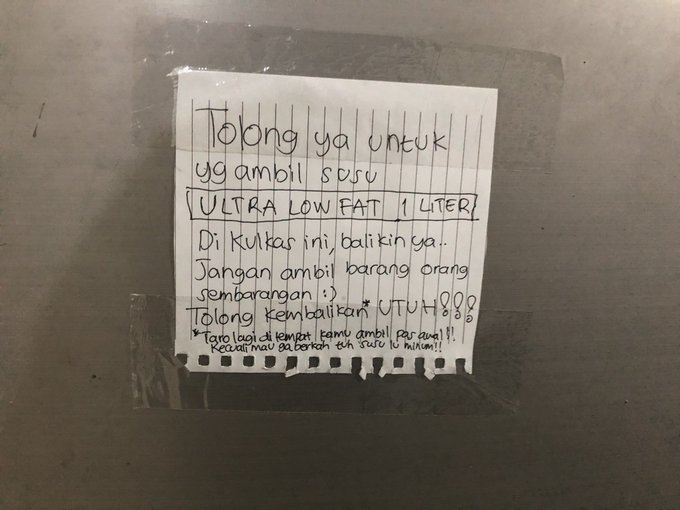 Tolong ya untuk
yg ambil susu
ULTRA LOW FAT 1 LITER
Di Kulkas ini, balikin ya..
Jangan ambil barang orang
sembarangan :)
Tolong kembalikan* UTUH!!!
*Taro lagi di tempat kamu ambil pas awal!!
Kecuali mau ga berkah tuh susu lu minum!!